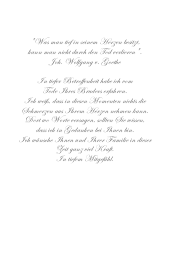 "Was man tief in seinem Herzen besitzt,
kann man nicht durch den Tod verlieren."
Joh. Wolfgang v. Goethe
In tiefer Betroffenheit habe ich vom
Tode Ihres Bruders erfahren.
Ich weiß, dass in diesen Momenten nichts die
Schmerzen aus Ihrem Herzen nehmen kann.
Dort wo Worte versagen, sollten Sie wissen,
dass ich in Gedanken bei Ihnen bin.
Ich wünsche Ihnen und Ihrer Familie in dieser
Zeit ganz viel Kraft.
In tiefem Mitgefühl.